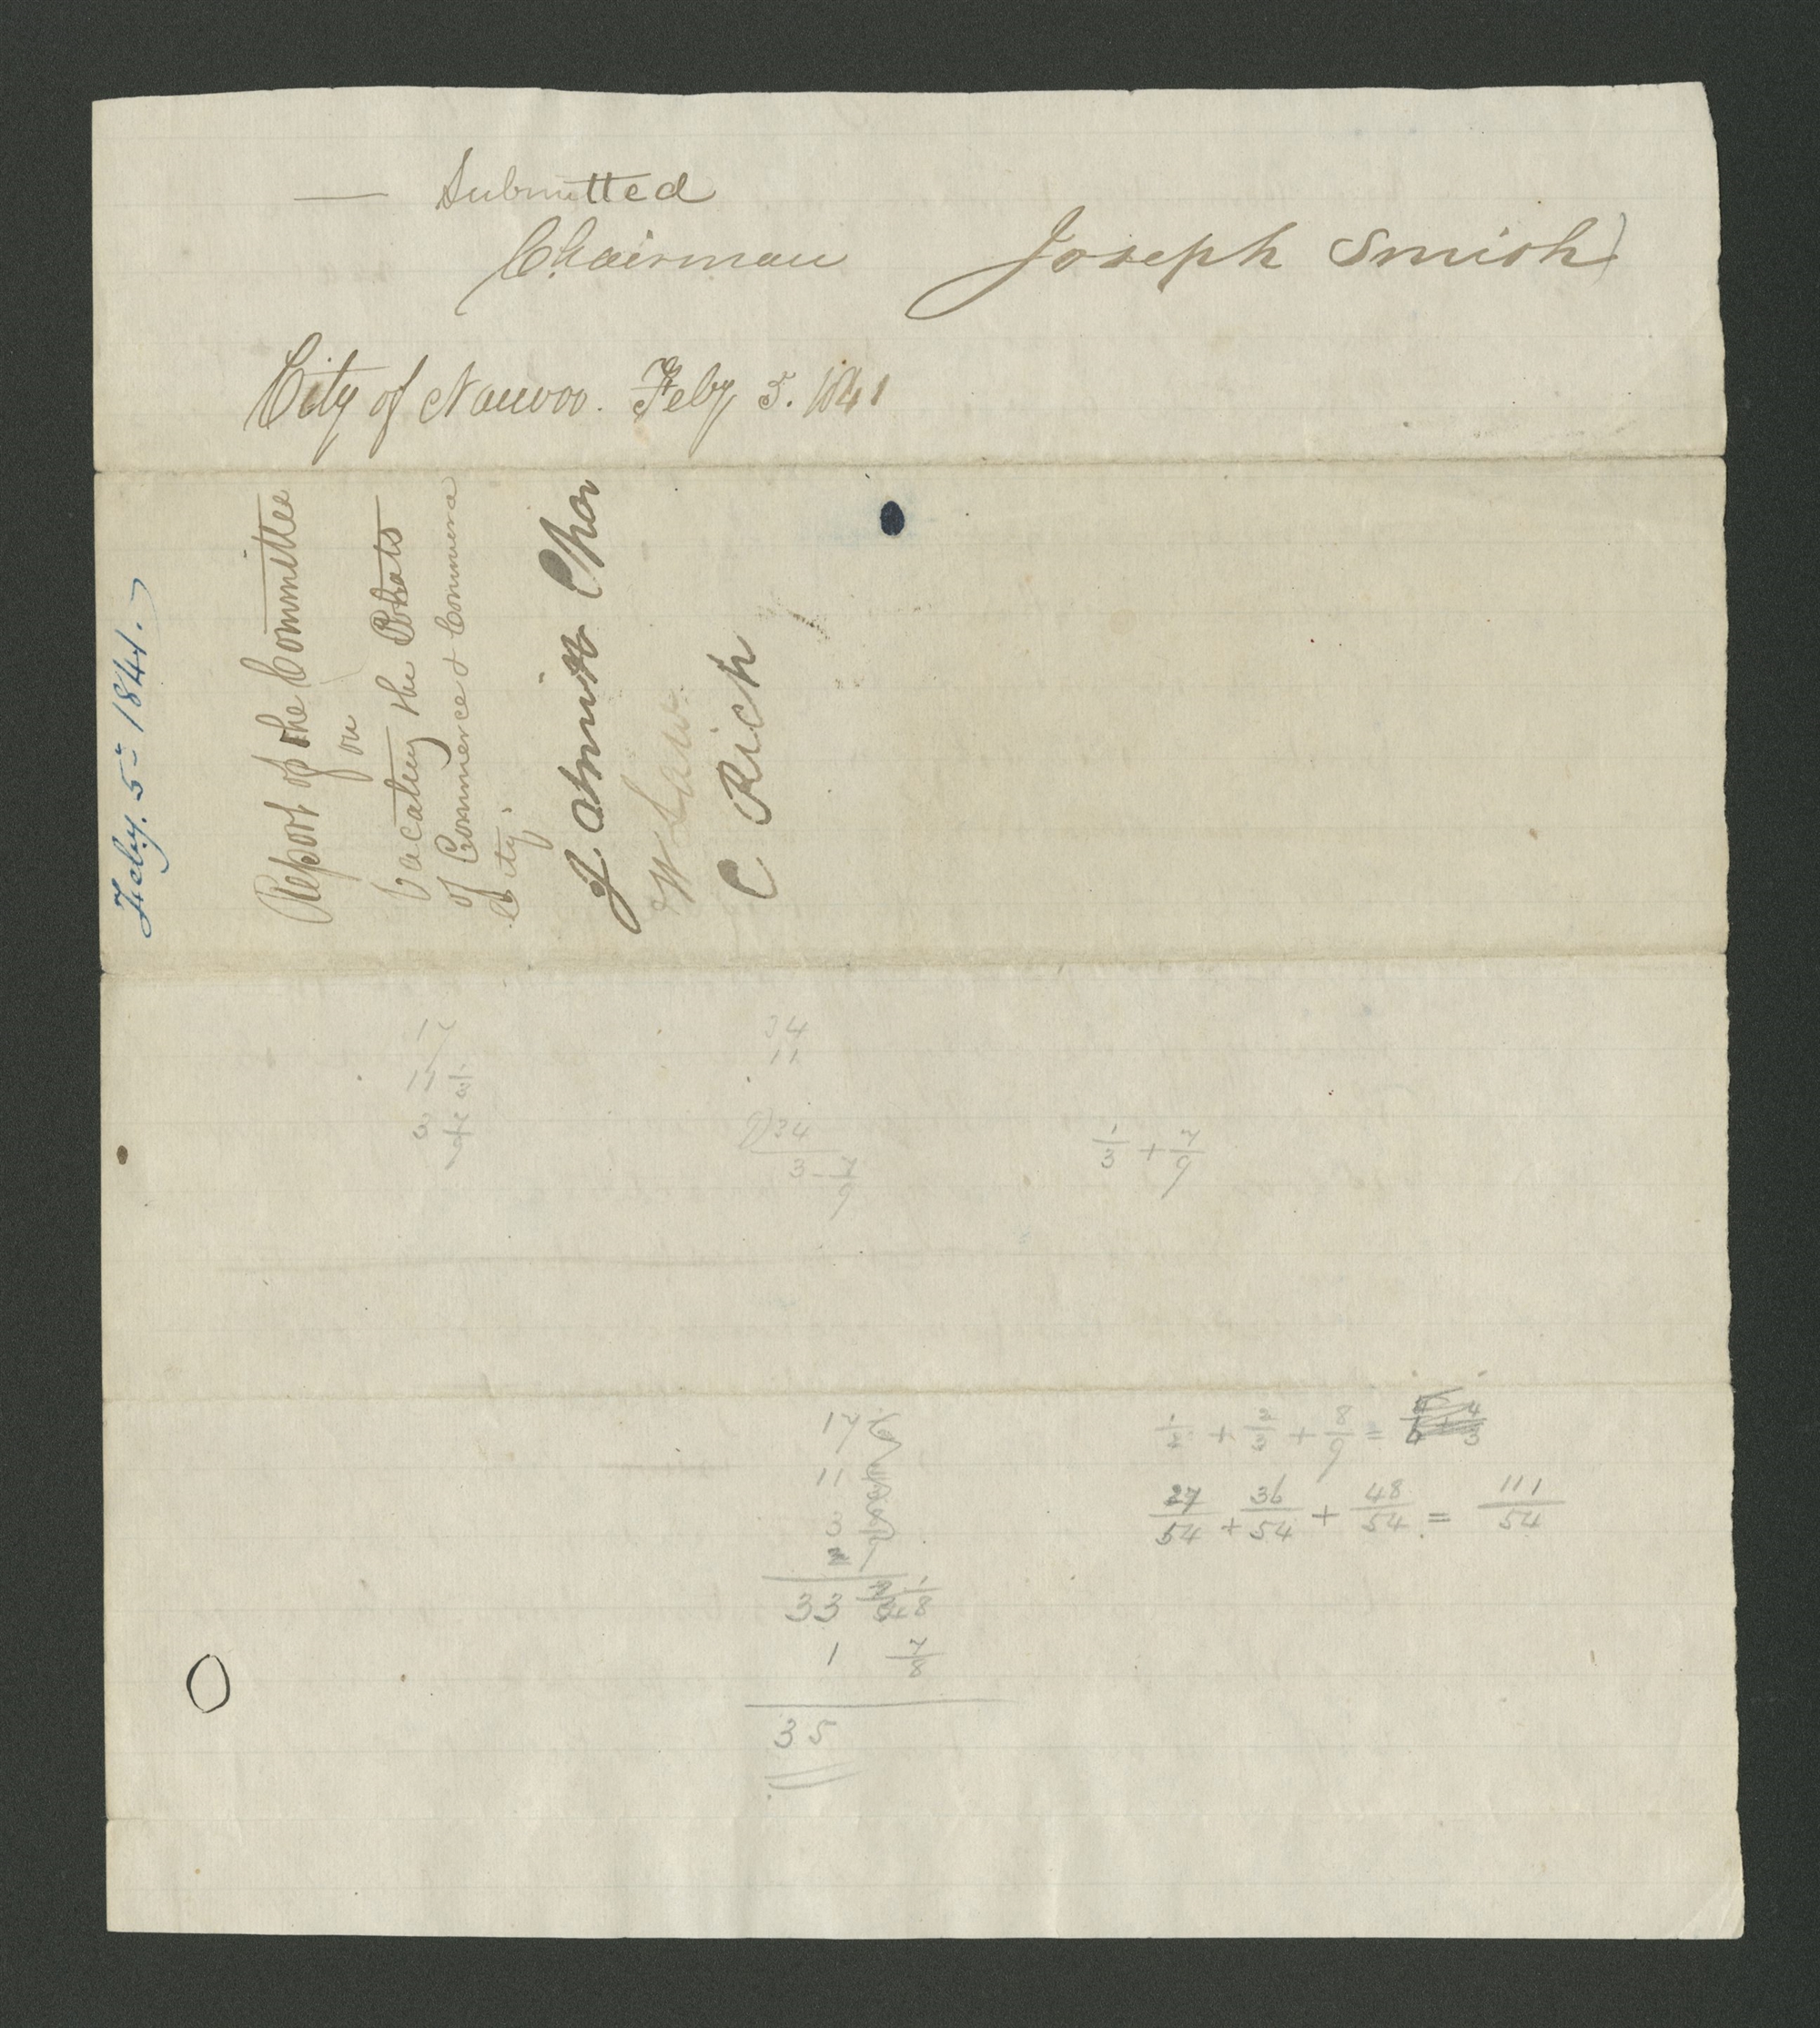 — Submitted
Chairman Joseph Smith
City of Nauvoo. Feby 5. 1841
Feby. 5- 1841.
Report of the Committee
on
Vacating the Plats
of Commerce & Commerce
City.
W Law
C Rich
34
11
9)34
3-7/9
1/3 + 7/9
17
11
3
33
1 7/8
35
1/2 + 2/3 + 8/9 =
27/54 + 36/54 + 48/54 = 111/54